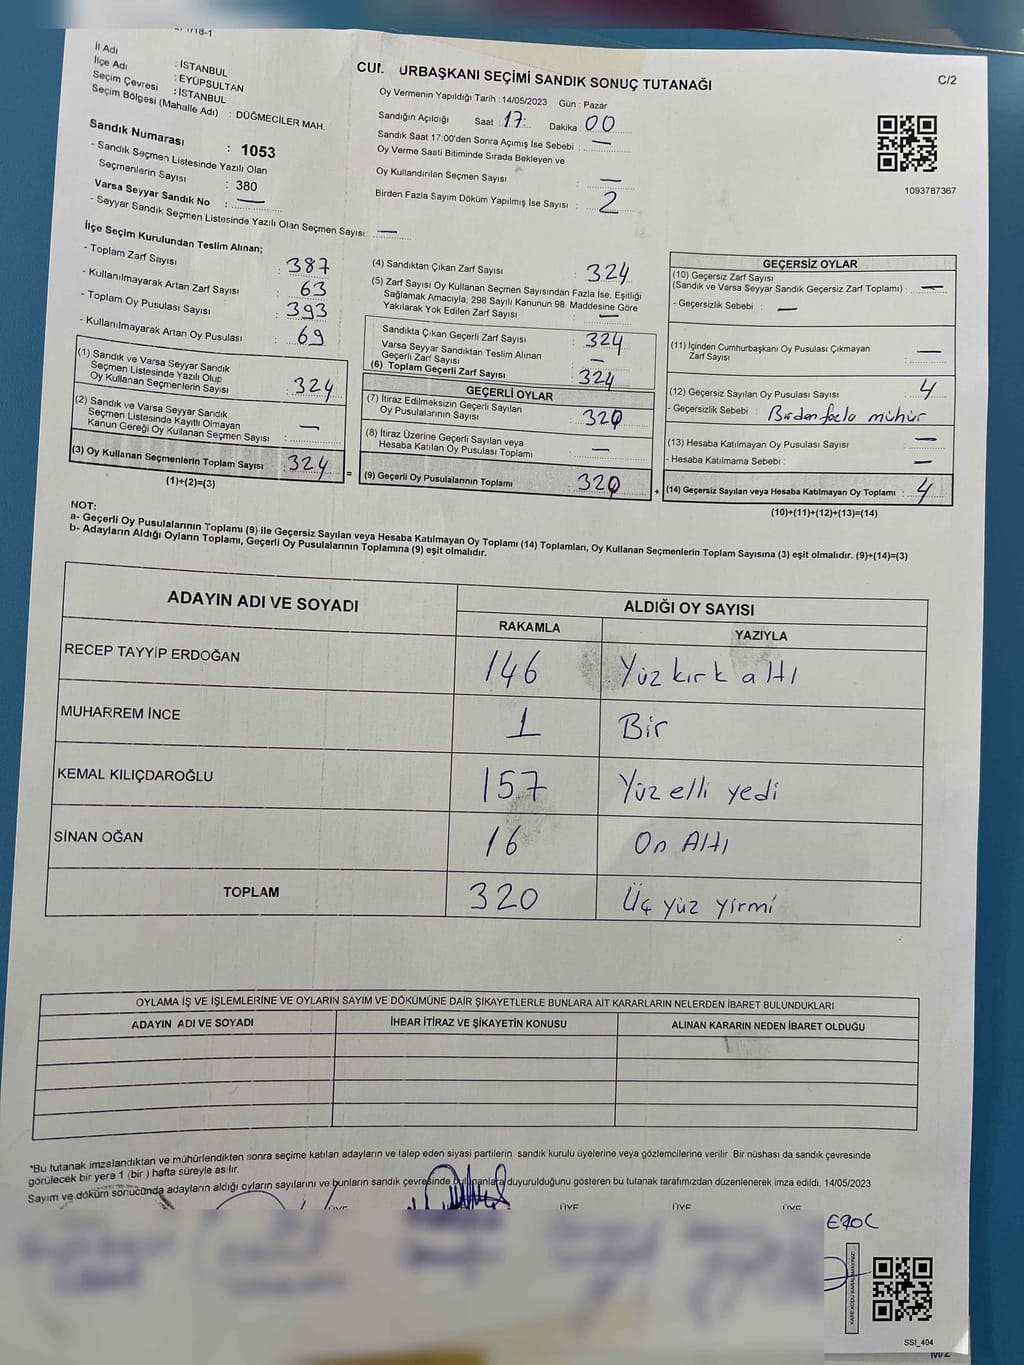 İl Adı : İSTANBUL
İlçe Adı : EYÜPSULTAN
Seçim Çevresi : İSTANBUL
Seçim Bölgesi (Mahalle Adı) : DÜĞMECİLER MAH.
Sandık Numarası : 1053
- Sandık Seçmen Listesinde Yazılı Olan
Seçmenlerin Sayısı : 380
Varsa Seyyar Sandık No : —
- Seyyar Sandık Seçmen Listesinde Yazılı Olan Seçmen Sayısı: —
URBAŞKANI SEÇİMİ SANDIK SONUÇ TUTANAĞI
C/2
Oy Vermenin Yapıldığı Tarih : 14/05/2023 Gün : Pazar
Sandığın Açıldığı Saat : 17 Dakika : 00
Sandık Saat 17:00'den Sonra Açımış İse Sebebi : —
Oy Verme Saati Bitiminde Sırada Bekleyen ve
Oy Kullandırılan Seçmen Sayısı : —
Birden Fazla Sayım Döküm Yapılmış İse Sayısı : 2
1093787367
İlçe Seçim Kurulundan Teslim Alınan;
- Toplam Zarf Sayısı : 387
- Kullanılmayarak Artan Zarf Sayısı : 63
- Toplam Oy Pusulası Sayısı : 393
- Kullanılmayarak Artan Oy Pusulası : 69
(1) Sandık ve Varsa Seyyar Sandık
Seçmen Listesinde Yazılı Olup
Oy Kullanan Seçmenlerin Sayısı : 324
(2) Sandık ve Varsa Seyyar Sandık
Seçmen Listesinde Kayıtlı Olmayan
Kanun Gereği Oy Kullanan Seçmen Sayısı : —
(3) Oy Kullanan Seçmenlerin Toplam Sayısı : 324
(1)+(2)=(3)
(4) Sandıktan Çıkan Zarf Sayısı : 324
(5) Zarf Sayısı Oy Kullanan Seçmen Sayısından Fazla İse, Eşitliği
Sağlamak Amacıyla, 298 Sayılı Kanunun 98. Maddesine Göre
Yakılarak Yok Edilen Zarf Sayısı : —
Sandıkta Çıkan Geçerli Zarf Sayısı : 324
Varsa Seyyar Sandıktan Teslim Alınan
Geçerli Zarf Sayısı : —
(6) Toplam Geçerli Zarf Sayısı : 324
GEÇERLİ OYLAR
(7) İtiraz Edilmeksizin Geçerli Sayılan
Oy Pusulalarının Sayısı : 320
(8) İtiraz Üzerine Geçerli Sayılan veya
Hesaba Katılan Oy Pusulası Toplamı : —
= (9) Geçerli Oy Pusulalarının Toplamı : 320
GEÇERSİZ OYLAR
(10) Geçersiz Zarf Sayısı
(Sandık ve Varsa Seyyar Sandık Geçersiz Zarf Toplamı) : —
- Geçersizlik Sebebi : —
(11) İçinden Cumhurbaşkanı Oy Pusulası Çıkmayan
Zarf Sayısı : —
(12) Geçersiz Sayılan Oy Pusulası Sayısı : 4
- Geçersizlik Sebebi : Birden fazla mühür
(13) Hesaba Katılmayan Oy Pusulası Sayısı : —
- Hesaba Katılmama Sebebi : —
+ (14) Geçersiz Sayılan veya Hesaba Katılmayan Oy Toplamı : 4
(10)+(11)+(12)+(13)=(14)
NOT:
a- Geçerli Oy Pusulalarının Toplamı (9) ile Geçersiz Sayılan veya Hesaba Katılmayan Oy Toplamı (14) Toplamları, Oy Kullanan Seçmenlerin Toplam Sayısına (3) eşit olmalıdır. (9)+(14)=(3)
b- Adayların Aldığı Oyların Toplamı, Geçerli Oy Pusulalarının Toplamına (9) eşit olmalıdır.
ADAYIN ADI VE SOYADI ALDIĞI OY SAYISI
RAKAMLA YAZIYLA
RECEP TAYYİP ERDOĞAN 146 Yüz kırk altı
MUHARREM İNCE 1 Bir
KEMAL KILIÇDAROĞLU 157 Yüz elli yedi
SİNAN OĞAN 16 On Altı
TOPLAM 320 Üç yüz yirmi
OYLAMA İŞ VE İŞLEMLERİNE VE OYLARIN SAYIM VE DÖKÜMÜNE DAİR ŞİKAYETLERLE BUNLARA AİT KARARLARIN NELERDEN İBARET BULUNDUKLARI
ADAYIN ADI VE SOYADI İHBAR İTİRAZ VE ŞİKAYETİN KONUSU ALINAN KARARIN NEDEN İBARET OLDUĞU
*Bu tutanak imzalandıktan ve mühürlendikten sonra seçime katılan adayların ve talep eden siyasi partilerin sandık kurulu üyelerine veya gözlemcilerine verilir. Bir nüshası da sandık çevresinde
görülecek bir yere 1 (bir ) hafta süreyle asılır.
Sayım ve döküm sonucunda adayların aldığı oyların sayılarını ve bunların sandık çevresinde bulunanlara duyurulduğunu gösteren bu tutanak tarafımızdan düzenlenerek imza edildi. 14/05/2023
ÜYE ÜYE ÜYE ÜYE
SSI_404